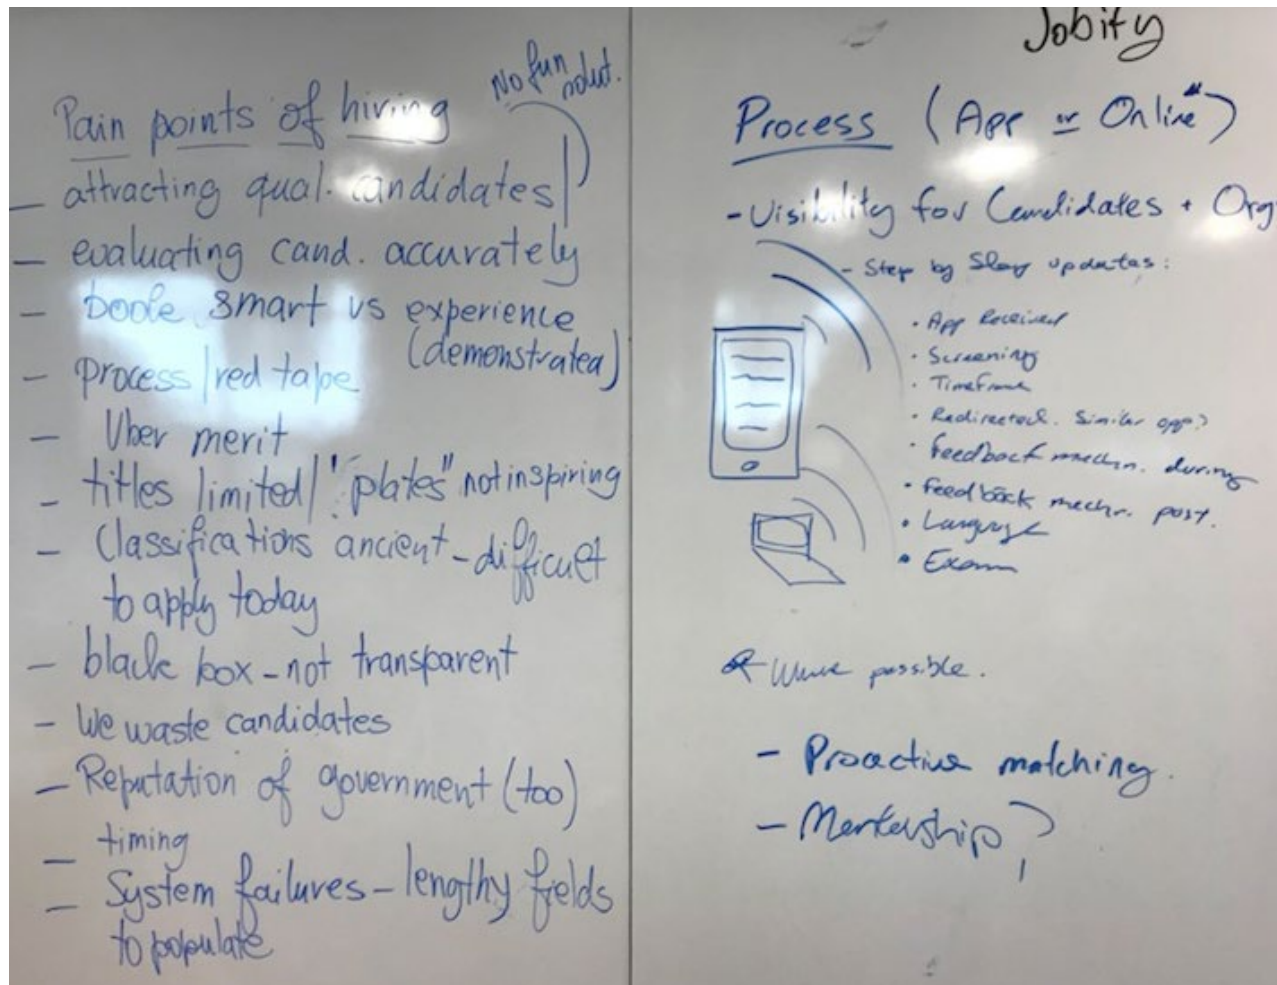 No fun
solut.
Pain points of hiring
– attracting qual. candidates
– evaluating cand. accurately
– book smart vs experience
(demonstrated)
– process/red tape
– Uber merit
– titles limited/"plates" not inspiring
– Classifications ancient – difficult
to apply today
– black box – not transparent
– We waste candidates
– Reputation of government (too)
– timing
– System failures – lengthy fields
to populate
Jobify
Process (App or Online*)
- Visibility for Candidates + Org
- Step by Step updates:
• App Received
• Screening
• Timeframe
• Redirected. Similar opp?
• Feedback mechn. during
• Feedback mechn. post.
• Language
• Exam
* Where possible.
– Proactive matching.
– Mentorship?